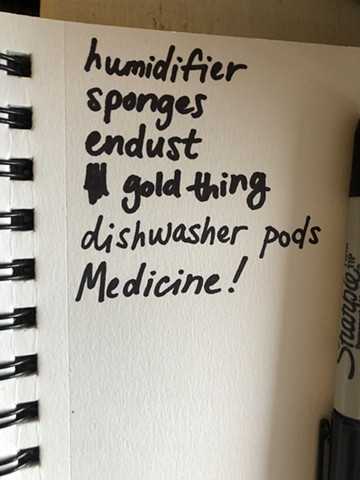 humidifier
sponges
endust
gold thing
dishwasher pods
Medicine!
Sharpie